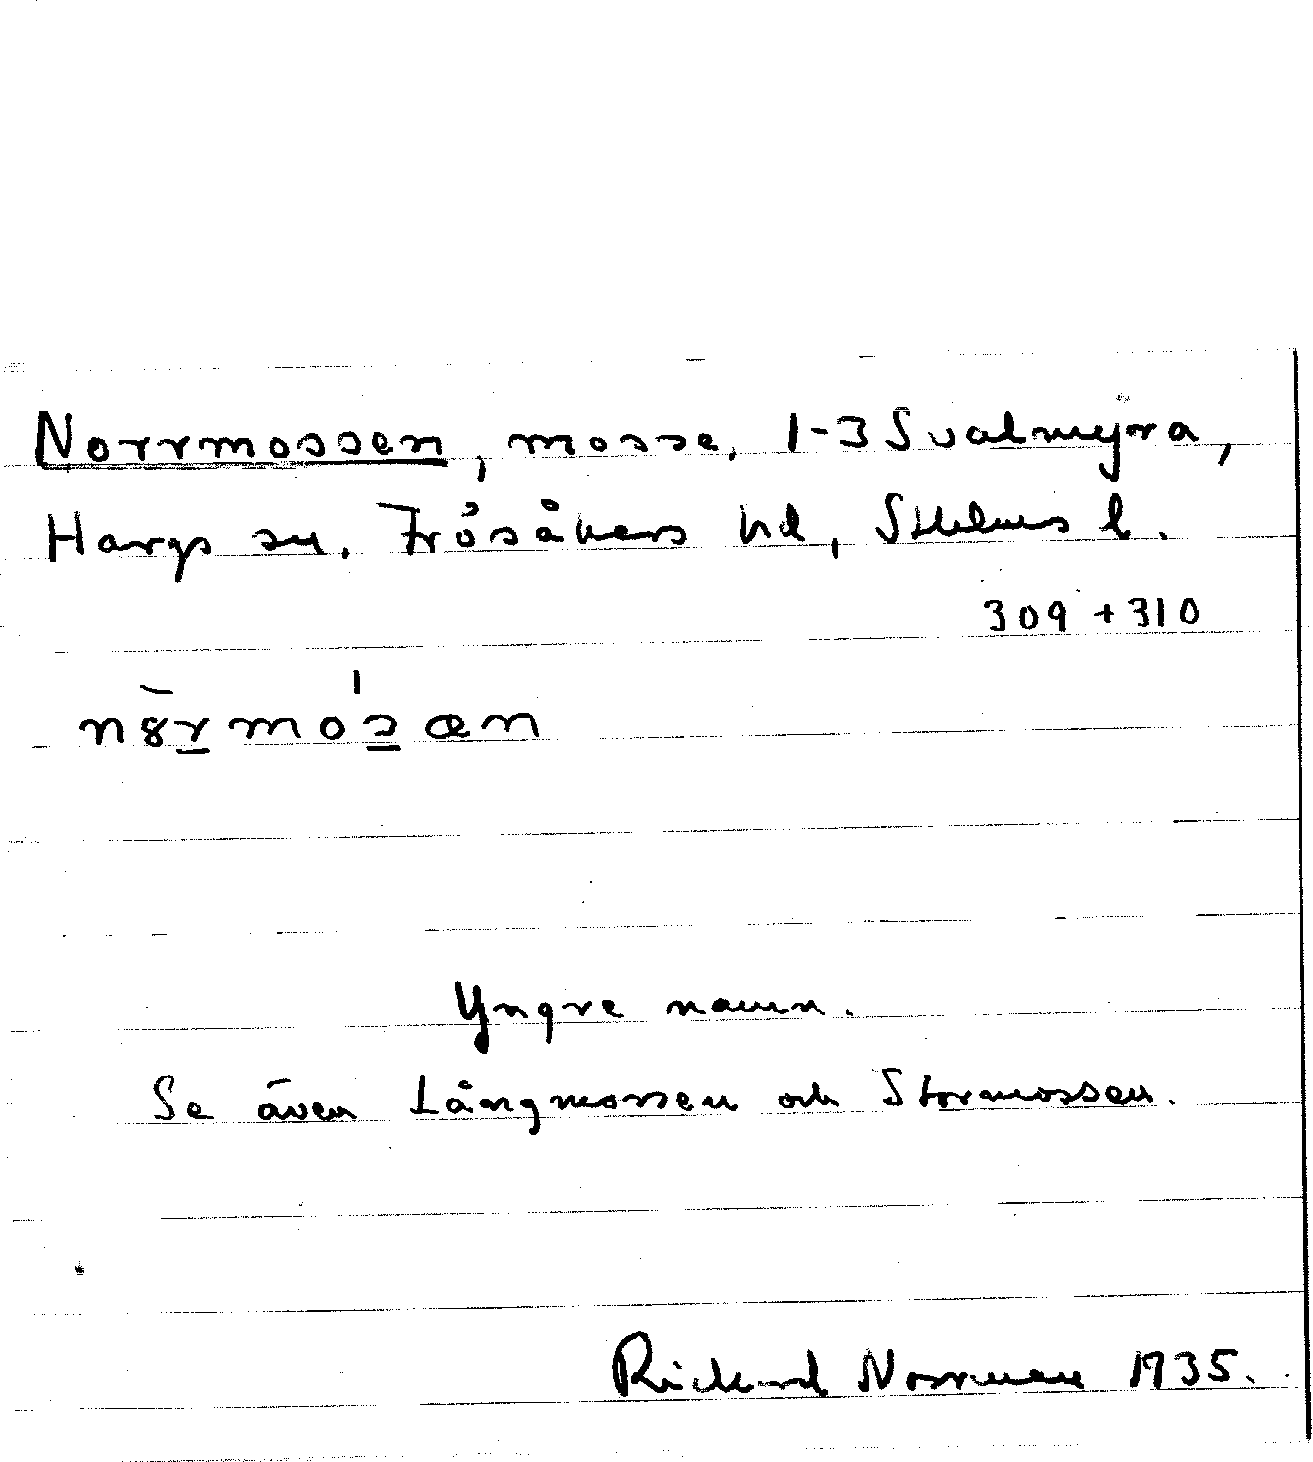 Norrmossen, mosse, 1-3 Svalmyra,
Hargs sn. Frösåkers hd, Sthlms l.
309 + 310
Yngre namn.
Se även Långmossen och Stormossen.
Rickard Norrman 1935.